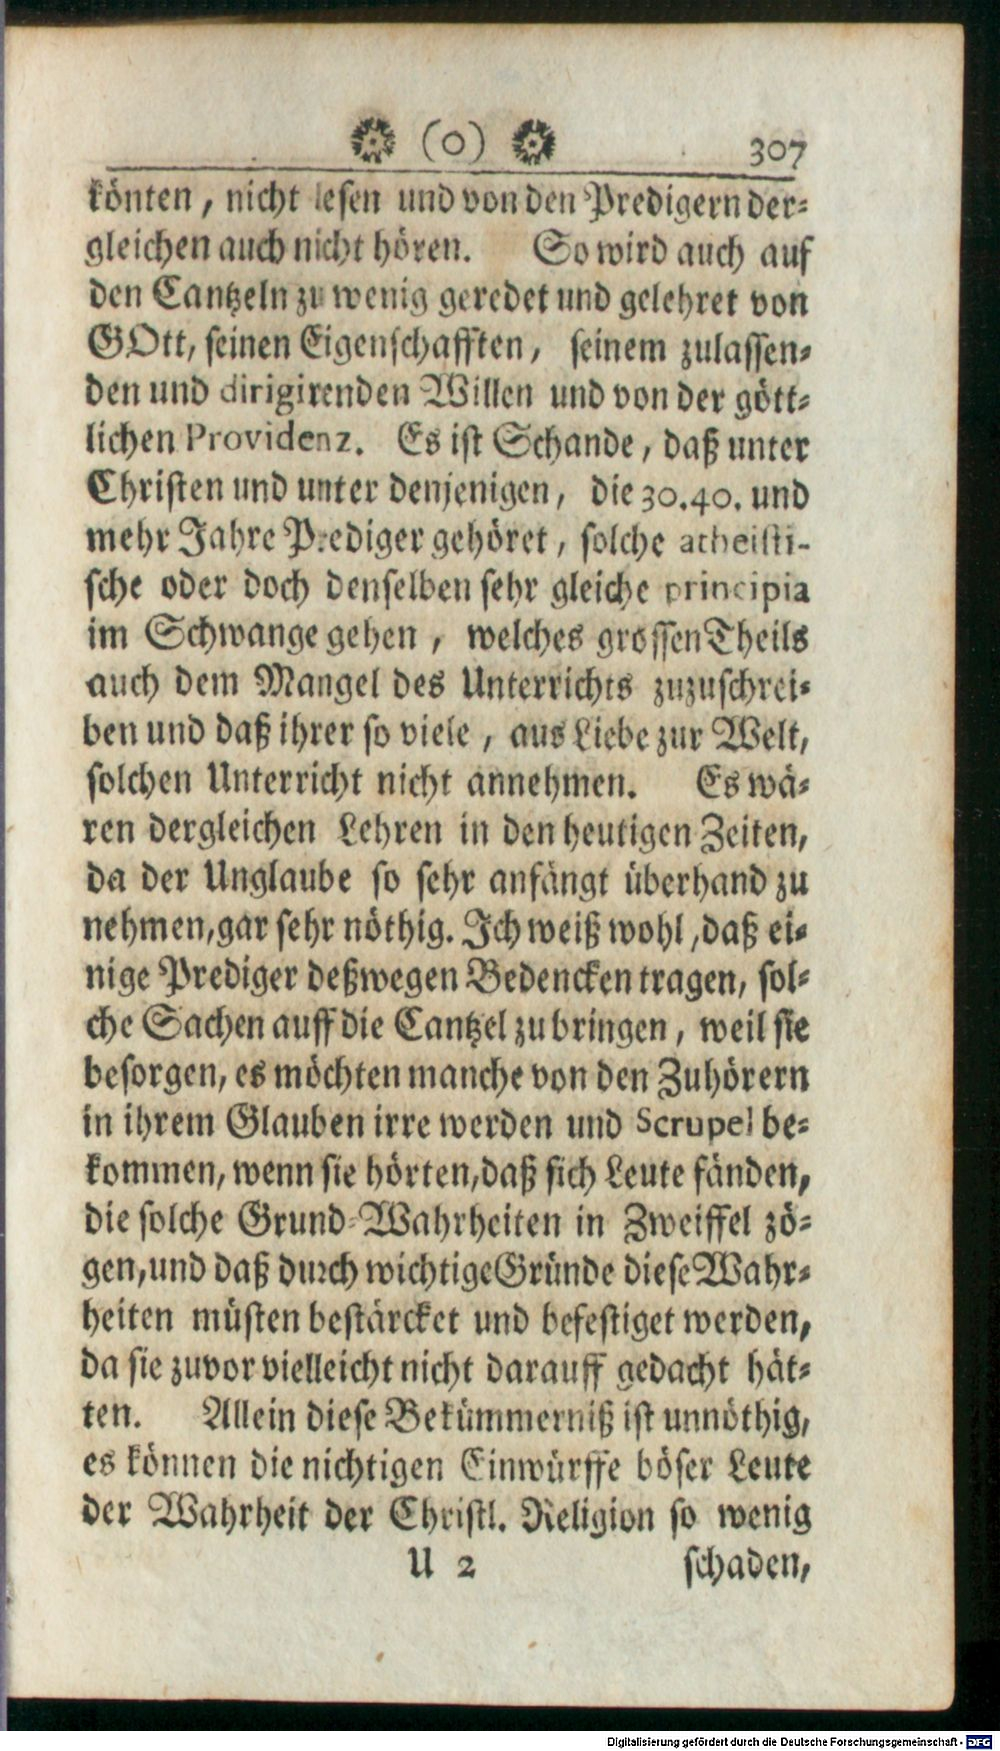 (o) 307
könten, nicht lesen und von den Predigern der-
gleichen auch nicht hören. So wird auch auf
den Cantzeln zu wenig geredet und gelehret von
GOtt, seinen Eigenschafften, seinem zulassen-
den und dirigirenden Willen und von der gött-
lichen Providenz. Es ist Schande, daß unter
Christen und unter denjenigen, die 30.40. und
mehr Jahre Prediger gehöret, solche atheisti-
sche oder doch denselben sehr gleiche principia
im Schwange gehen, welches grossen Theils
auch dem Mangel des Unterrichts zuzuschrei-
ben und daß ihrer so viele, aus Liebe zur Welt,
solchen Unterricht nicht annehmen. Es wä-
ren dergleichen Lehren in den heutigen Zeiten,
da der Unglaube so sehr anfängt überhand zu
nehmen, gar sehr nöthig. Ich weiß wohl, daß ei-
nige Prediger deßwegen Bedencken tragen, sol-
che Sachen auff die Cantzel zu bringen, weil sie
besorgen, es möchten manche von den Zuhörern
in ihrem Glauben irre werden und Scrupel be-
kommen, wenn sie hörten, daß sich Leute fänden,
die solche Grund-Wahrheiten in Zweiffel zö-
gen, und daß durch wichtige Gründe diese Wahr-
heiten müsten bestärcket und befestiget werden,
da sie zuvor vielleicht nicht darauff gedacht hät-
ten. Allein diese Bekümmerniß ist unnöthig,
es können die nichtigen Einwürffe böser Leute
der Wahrheit der Christl. Religion so wenig
U 2 schaden,
Digitalisierung gefördert durch die Deutsche Forschungsgemeinschaft - DFG